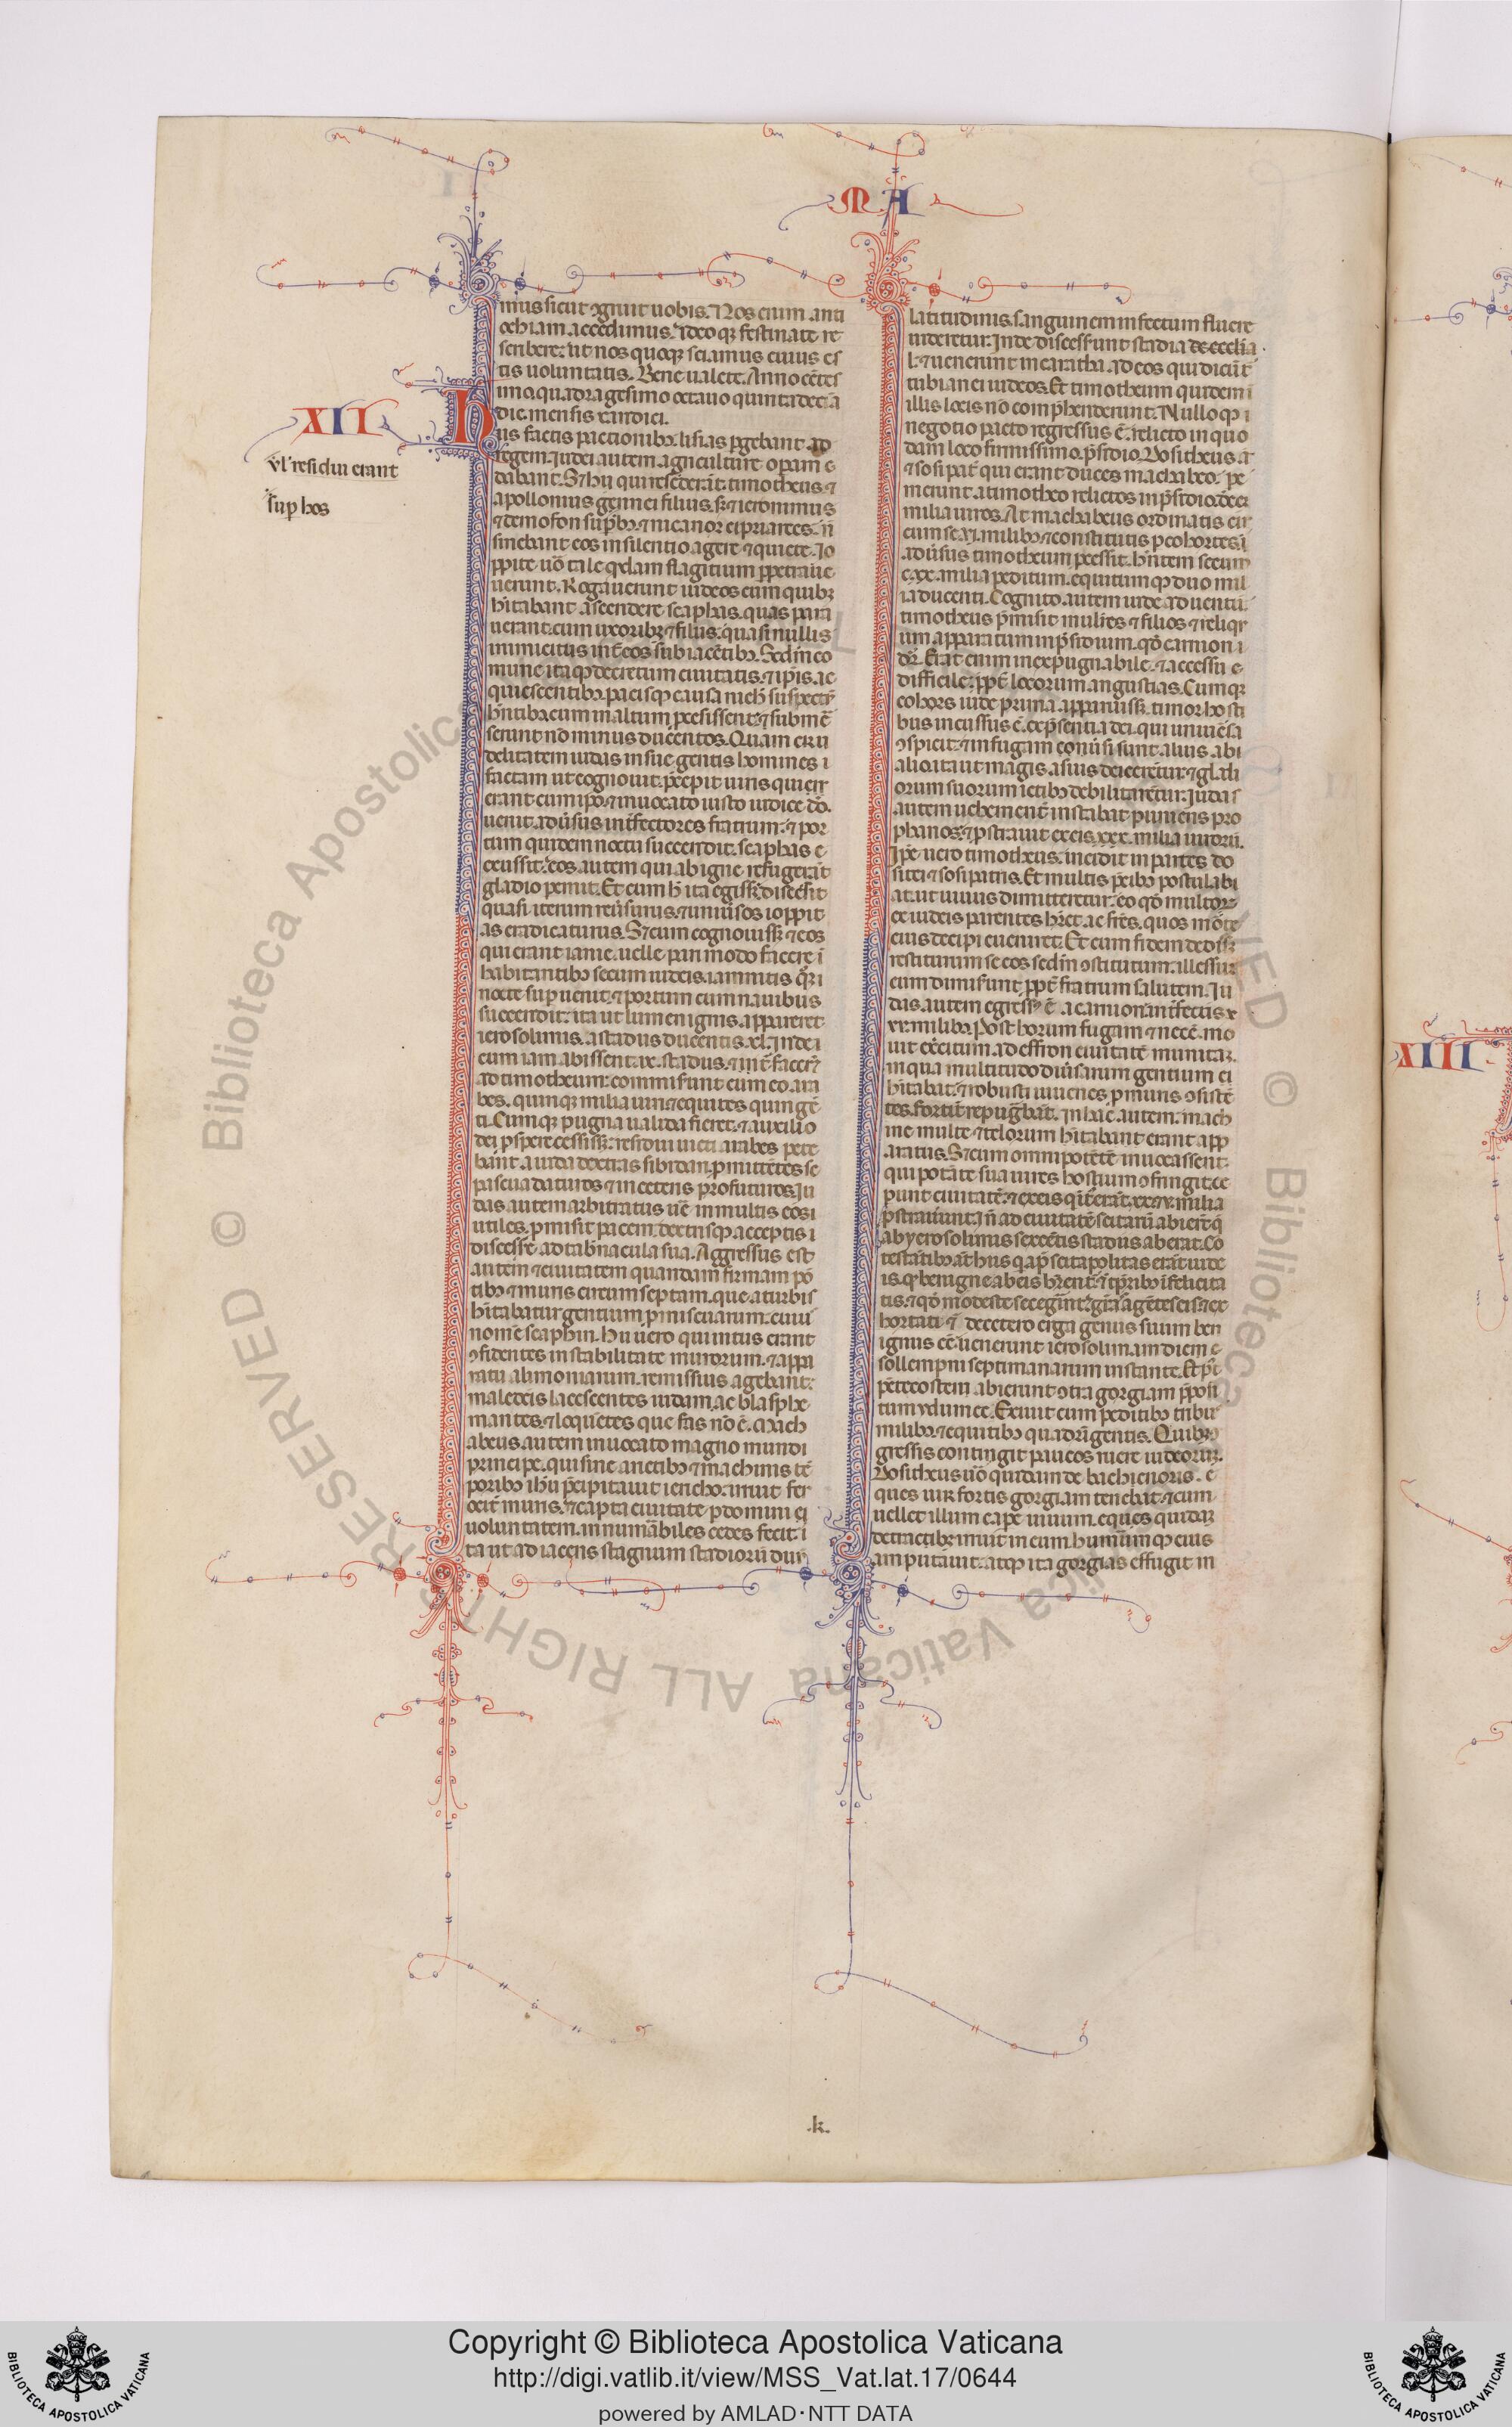 MA
mus sicut ꝯgruit uobis. Nos enim anti
ochiam accedimus. Ideoqꝫ festinate re
scribere: ut nos quoqꝫ sciamus cuius es
tis uoluntatis. Bene ualete. Anno cētes
imo quadragesimo octauo quintadecīa
die mensis xandici.
XII
Hiis factis pactionibꝫ lisias pgebant ad
regem. iudei autem agriculture operam
dabant. Sꝫ hii qui resederāt. timotheus ⁊
apollonius gennei filius. sꝫ ⁊ ieronimus
⁊ demofon supbꝫ ⁊ nicanor cipriarces. ñ
sinebant eos in silentio agere ⁊ quiete. Io
ppite uō tale qdam flagitium ppetraue
uerunt. Rogauerunt iudeos cum quibꝫ
hītabant ascendere scaphas. quas para
uerant. cum uxoribꝫ ⁊ filiis. quasi nullis
inimicitiis int̄ eos subiacētibꝫ. Sed̄m co
mune itaqꝫ decretum ciuitatis. ⁊ ip̄is ac
quiescentibꝫ pacisqꝫ causa nich̄ suspectū
hn̄tibꝫ cum in altum pcessissent. ⁊ submē
serunt nō minus ducentos. Quam cru
delitatem iudas in sue gentis homines
factam ut cognouit. pcepit uiris qui cū
erant cum ipō. ⁊ inuocato iusto iudice dō.
uenit adūsus int̄fectores fratrum. ⁊ por
tum quidem noctu succendit. scaphas e
cussit. eos autem qui ab igne refugerāt
gladio pemit. Et cum h̄ ita egissꝫ. discessit
quasi iterum reūsurus. ⁊ uniūsos ioppit
as eradicaturus. Sꝫ cum cognouissꝫ ⁊ eos
qui erant iamie. uelle pari modo facere
habitantibꝫ secum iudeis. iamnitis qꝫ
nocte supuenit. ⁊ portum cum nauibus
succendit. ita ut lumen ignis appareret
ierosolimis. a stadiis ducentis. xl. Inde
cum iam abissent. ix. stadiis. ⁊ int̄ facerēt
ad timotheum: commiserunt cum eo ara
bes. quinqꝫ milia uiri. ⁊ equites quingē
ti. Cumqꝫ pugna ualida fieret. ⁊ auxilio
dei pspere cessissꝫ. residui uicti arabes pete
bant a iuda dextras sibi dari. pmittētes se
pascua daturos ⁊ in ceteris profuturos. Iu
das autem arbitratus uē in multis eos
utiles. pmisit pacem. dextrisqꝫ acceptis
discesse ad tab̄nacula sua. Aggressus est
autem ⁊ ciuitatem quandam firmam pō
tibꝫ ⁊ muris circumseptam. que a turbis
hītabatur gentium pmiscuarum. cui
nomē scaphin. Hii uero qui intus erant
ꝯfidentes in stabilitate murorum. ⁊ appa
ratu alimoniarum. remissius agebant:
maledictis lacescentes iudam. ac blasphe
mantes. ⁊ loquētes que fas nō ē. Mach
abeus autem inuocato magno mundi
principe. qui sine arietibꝫ ⁊ machinis tē
poribꝫ ihū pcipitauit ierichꝫ. irruit fer
ocit̄ muris. ⁊ capta ciuitate p domini
uoluntatem. innumābiles cedes fecit.
ta ut adiacens stagnum stadiorū duū
ul' residui erant
sup hos
latitudinis. sanguinem infectum fluere
uideretur. Inde discesserunt stadia dccc
l. ⁊ uenerunt in caratha. ad eos qui dicūt
tubianei iudeos. Et timotheum quidem
illis locis nō comphenderunt. Nulloqꝫ
negotio pacto regressus ē. relicto in quo
dam loco firmissimo psidio. Dositheus āt
⁊ sosipat qui erant duces machabeo. pe
merunt a timotheo relictos in psidio. decē
milia uiros. At machabeus ordinatis cir
cum se. vi. milibꝫ ⁊ constitutis p cohortes
adūsus timotheum pcessit. hn̄tem secum
c. xx. milia peditum. equitumqꝫ duo mil
ia ducenti. Cognito autem iude aduentu.
timotheus pmisit mulieres ⁊ filios ⁊ reliqū
um apparatum in psidium. qd carnion
dr̄. Erat enim inexpugnabile. ⁊ accessu
difficile: pp̄t locorum angustias. Cumqꝫ
cohors iude prima apparuissꝫ. timor hosti
bus incussus ē. ex psentia dei. qui uniūsa
ꝯspicit. ⁊ in fugam conūsi sunt. alius abi
alio. ita ut magis a suis deicerētur. ⁊ gladi
orum suorum ictibꝫ debilitarētur. Iudas
autem uehement̄ instabat puniens pro
phanos. ⁊ pstrauit ex eis. xxx. milia uirorū.
Ipe uero timotheus. incidit in partes do
sitei ⁊ sosipatris. Et multis pcibꝫ postulabi
at. ut uiuus dimitteretur. eo qd multoꝝ
ex iudeis parentes hr̄et. ac fr̄es. quos morte
eius decipi eueniret. Et cum fidem dedissꝫ
restiturum se eos sed̄m ꝯstitutum: illesum
eum dimiserunt. pp̄t fratrum salutem. Iu
das autem egressus ē ad carnion. int̄fectis x
xv. milibꝫ. Post horum fugam ⁊ necē. mo
uit exc̄itum ad effron ciuitatē munitaꝫ.
in qua multitudo diūsarum gentium
hītabat. ⁊ robusti iuuenes. p muris ꝯsistē
tes. fortit̄ repugnabāt. In hac autem. mach
ine multe ⁊ telorum hītabant erant app
aratus. Sꝫ cum omnipotētē inuocassent.
qui potāte sua uires hostium ꝯfringit. ce
perunt ciuitatē. ⁊ ex eis q int̄ erāt. xxv. milia
pstrauerunt. In̄ ad ciuitatē scitarū abierūt
ab yerosolimis sexcētis stadiis aberat. Co
testātibꝫ āt hiis q ap̄ scitapolitas erāt iude
is. qꝫ benigne ab eis hr̄ent. ⁊ tpribꝫ ifelicita
tis. ⁊ qd modeste sec̄ egīnt. gr̄as agētes eis. ⁊ ex
hortati decetero erga genus suum ben
ignus eē. uenerunt ierosolimam diem
sollempni septimanarum instante. Et pt
pētecostem abierunt ꝯtra gorgiam pposi
tum ydumee. Exiuit cum peditibꝫ tribꝫ
milibꝫ. ⁊ equitibꝫ quadrīgentis. Quibꝫ
gressis contingit paucos ruere iudeorūꝫ.
Dositheus uō quidam de bachenoris. e
ques uir fortis gorgiam tenebat. ⁊ cum
uellet illum cape uiuum. eques quidaꝫ
de tracibꝫ irruit in eum. humerumqꝫ eius
amputauit. atqꝫ ita gorgias effugit in
.k.
XIII
Copyright © Biblioteca Apostolica Vaticana
http://digi.vatlib.it/view/MSS_Vat.lat.17/0644
powered by AMLAD·NTT DATA
BIBLIOTECA APOSTOLICA VATICANA
BIBLIOTECA APOSTOLICA VATICANA